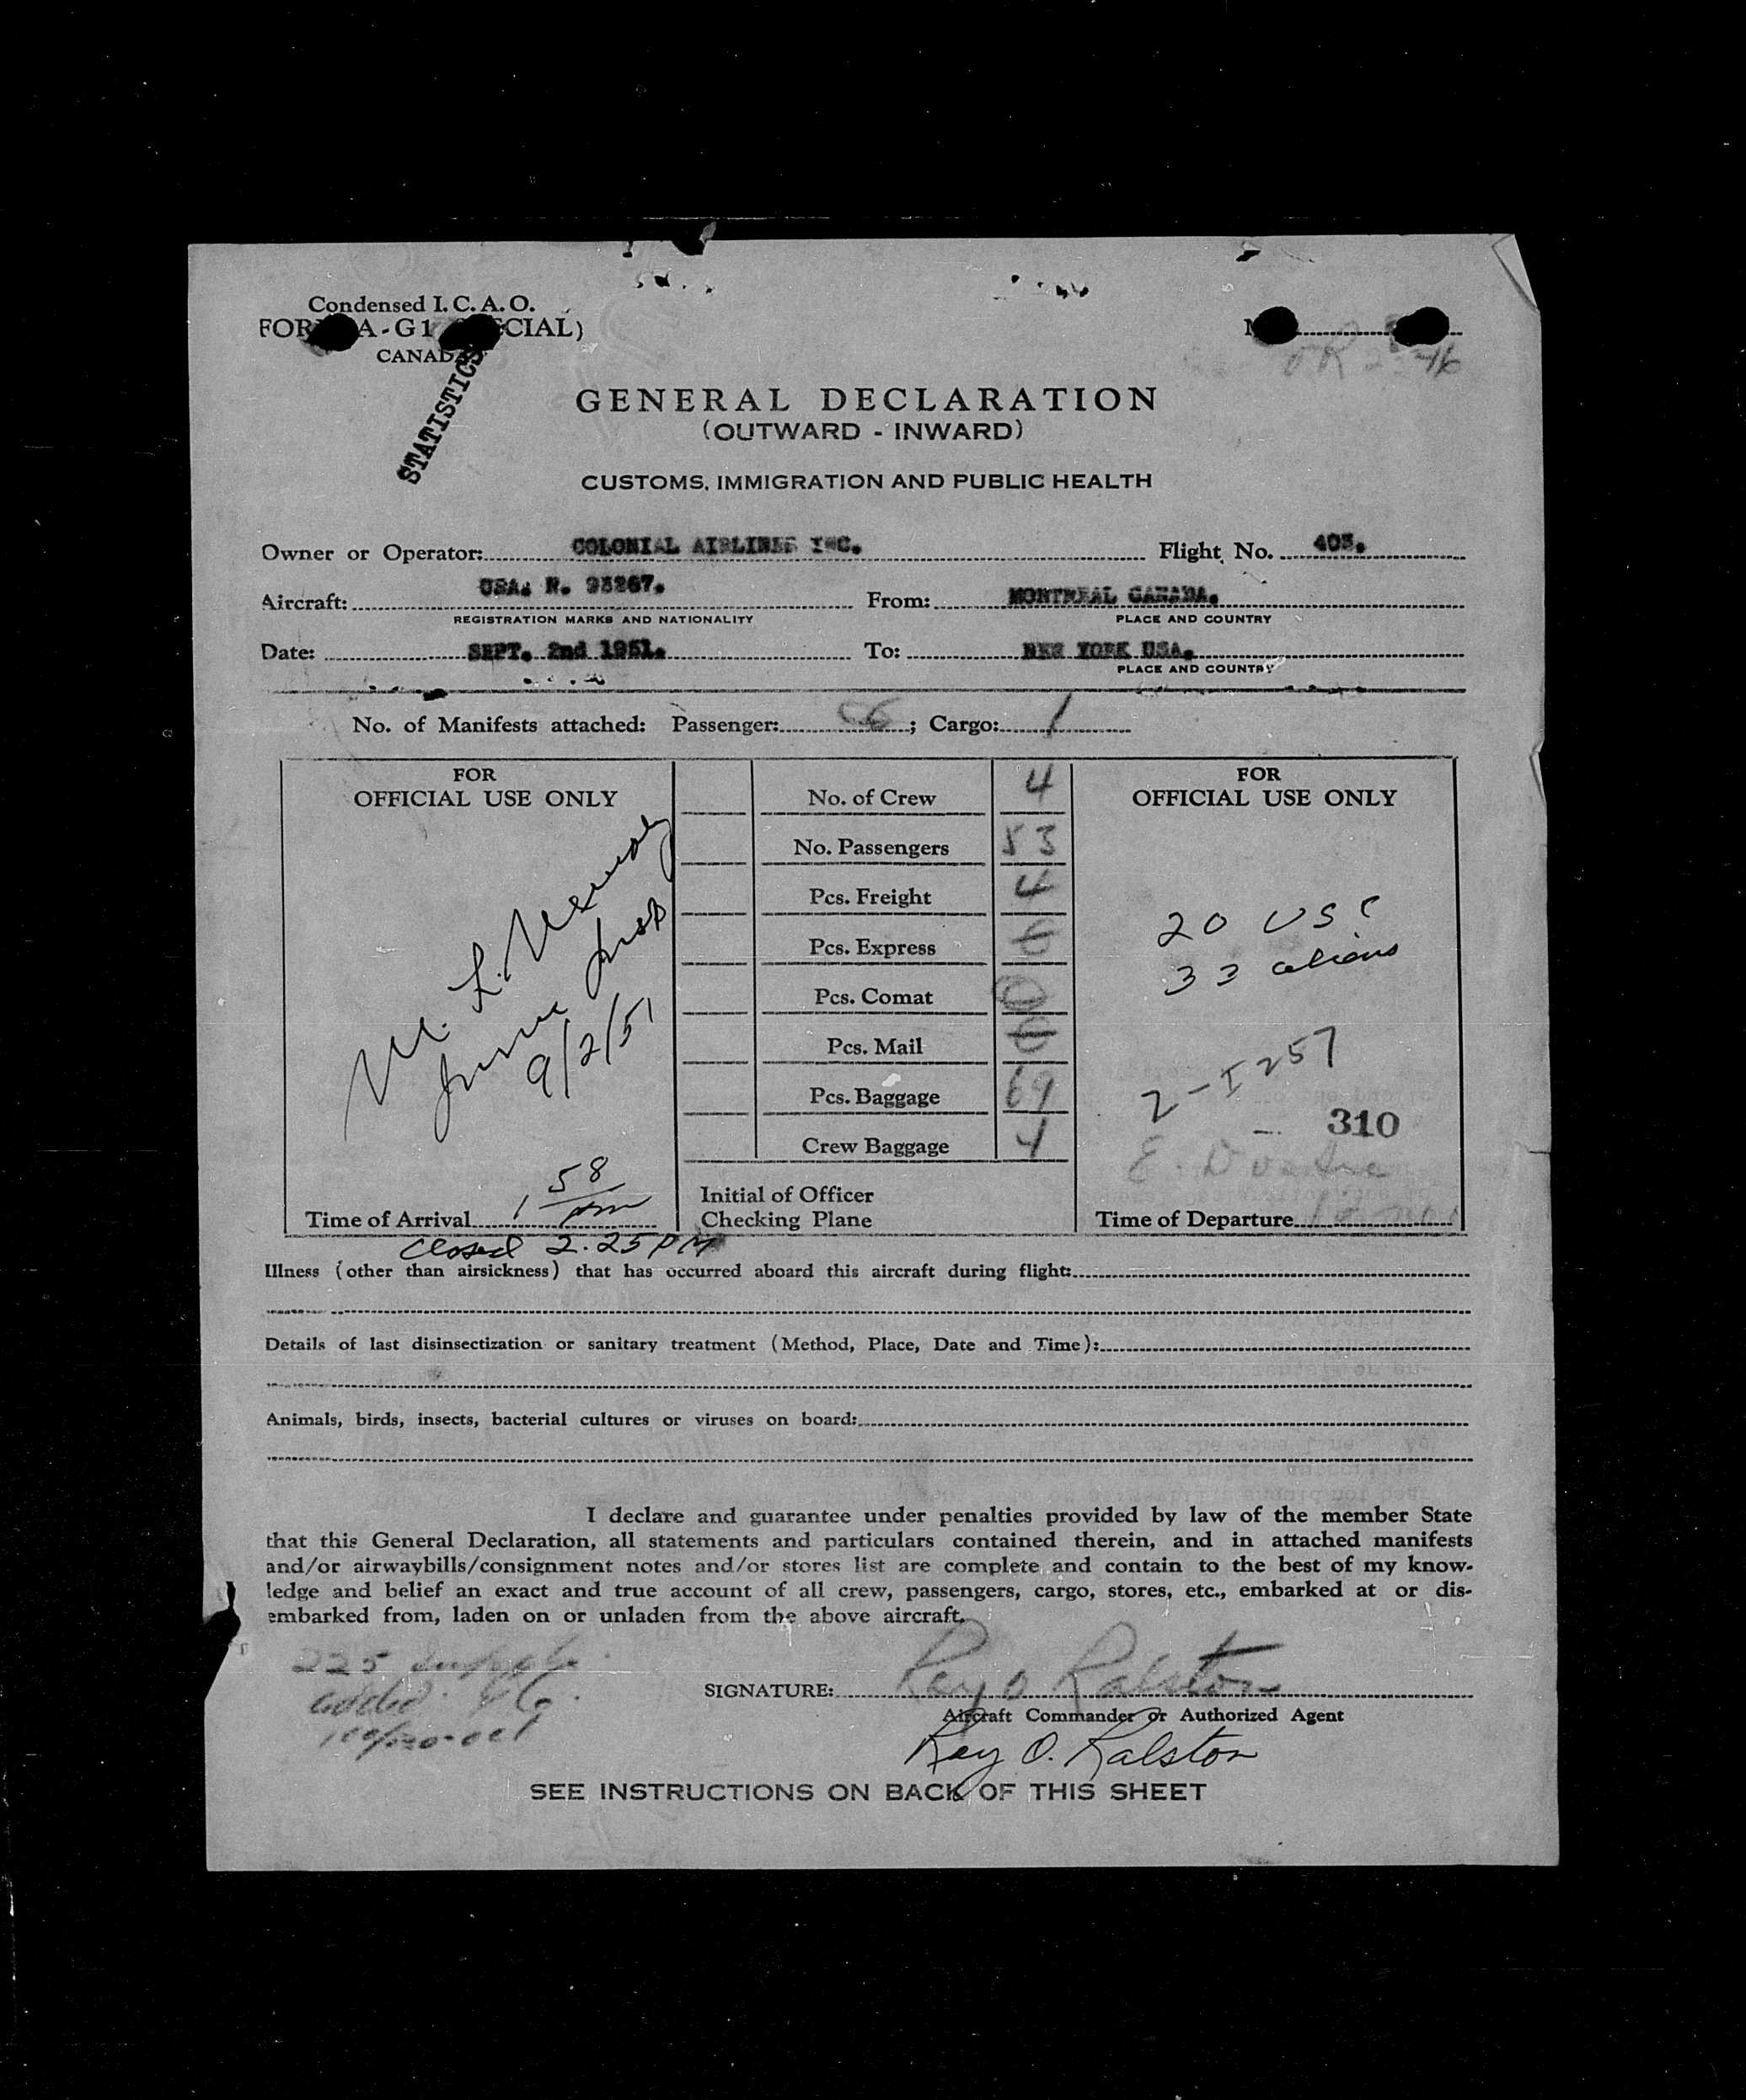 Condensed I. C. A. O.
A - G1 CIAL)
CANAD
STATISTICS
GENERAL DECLARATION
(OUTWARD - INWARD)
CUSTOMS, IMMIGRATION AND PUBLIC HEALTH
Owner or Operator: COLONIAL AIRLINES INC. Flight No. 403.
Aircraft: USA. N. 93267. From: MONTREAL CANADA.
REGISTRATION MARKS AND NATIONALITY PLACE AND COUNTRY
Date: SEPT. 2nd 1951. To: NEW YORK USA.
PLACE AND COUNTRY
No. of Manifests attached: Passenger: ; Cargo: 1
FOR
OFFICIAL USE ONLY
9/2/51
Time of Arrival 1 58 pm
Closed 2.25 PM
No. of Crew 4
No. Passengers 53
Pcs. Freight 4
Pcs. Express
Pcs. Comat 0
Pcs. Mail
Pcs. Baggage 69
Crew Baggage 4
Initial of Officer
Checking Plane
FOR
OFFICIAL USE ONLY
20 USC
33 aliens
2-I257
310
Time of Departure
Illness (other than airsickness) that has occurred aboard this aircraft during flight:
Details of last disinsectization or sanitary treatment (Method, Place, Date and Time):
Animals, birds, insects, bacterial cultures or viruses on board:
I declare and guarantee under penalties provided by law of the member State
that this General Declaration, all statements and particulars contained therein, and in attached manifests
and/or airwaybills/consignment notes and/or stores list are complete and contain to the best of my know-
ledge and belief an exact and true account of all crew, passengers, cargo, stores, etc., embarked at or dis-
embarked from, laden on or unladen from the above aircraft.
225
SIGNATURE: Ray O Ralston
Aircraft Commander or Authorized Agent
Ray O. Ralston
SEE INSTRUCTIONS ON BACK OF THIS SHEET